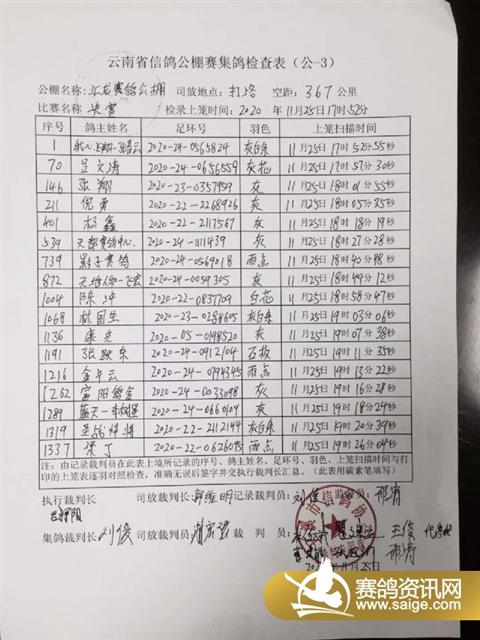 云南省信鸽公棚赛集鸽检查表（公-3）
公棚名称: 赛鸽公棚 司放地点: 打洛 空距: 367 公里
比赛名称: 决赛 检录上笼时间: 2020 年11月25日17时52分
序号 鸽主姓名 足环号 羽色 上笼扫描时间
1 2020-24-0565824 灰白条 11月25日17时52分55秒
70 吴文涛 2020-24-0656559 灰花 11月25日17时57分30秒
146 张翔 2020-23-0357959 灰 11月25日18时01分55秒
211 倪勇 2020-22-2268926 灰 11月25日18时05分35秒
401 杨鑫 2020-22-2117567 灰 11月25日18时18分19秒
539 天都赛鸽中心 2020-24-1111439 灰 11月25日18时27分28秒
739 影子赛鸽 2020-24-0569018 雨点 11月25日18时40分48秒
872 2020-24-0059305 灰 11月25日18时49分12秒
1004 陈冲 2020-22-0837709 白花 11月25日18时58分47秒
1068 林国生 2020-23-0288605 灰白条 11月25日19时03分06秒
1136 康光 2020-05-0198520 灰 11月25日19时07分38秒
1191 张跃东 2020-24-0912104 石板 11月25日19时11分35秒
1216 金年云 2020-24-0794345 雨点 11月25日19时13分22秒
1262 富阳鸽舍 2020-24-0033098 灰 11月25日19时16分28秒
1289 蓝天一 2020-24-0661104 灰 11月25日19时18分24秒
1319 2020-22-2112233 灰白条 11月25日19时20分39秒
1337 梁丁 2020-22-0626095 雨点 11月25日19时26分04秒
注: 由记录裁判员在此表上填所记录的序号、鸽主姓名、足环号、羽色、上笼扫描时间与打印的上笼表逐羽对照检查，准确无误后签字并交执行裁判长汇总。（此表用碳素笔填写）
执行裁判长 司放裁判长 郭维明 记录裁判员 刘俊 监
集鸽裁判长 刘俊 司放裁判员 裁 判 员: 王俊
市信鸽协
11月25日
赛鸽资讯网
www.saige.com